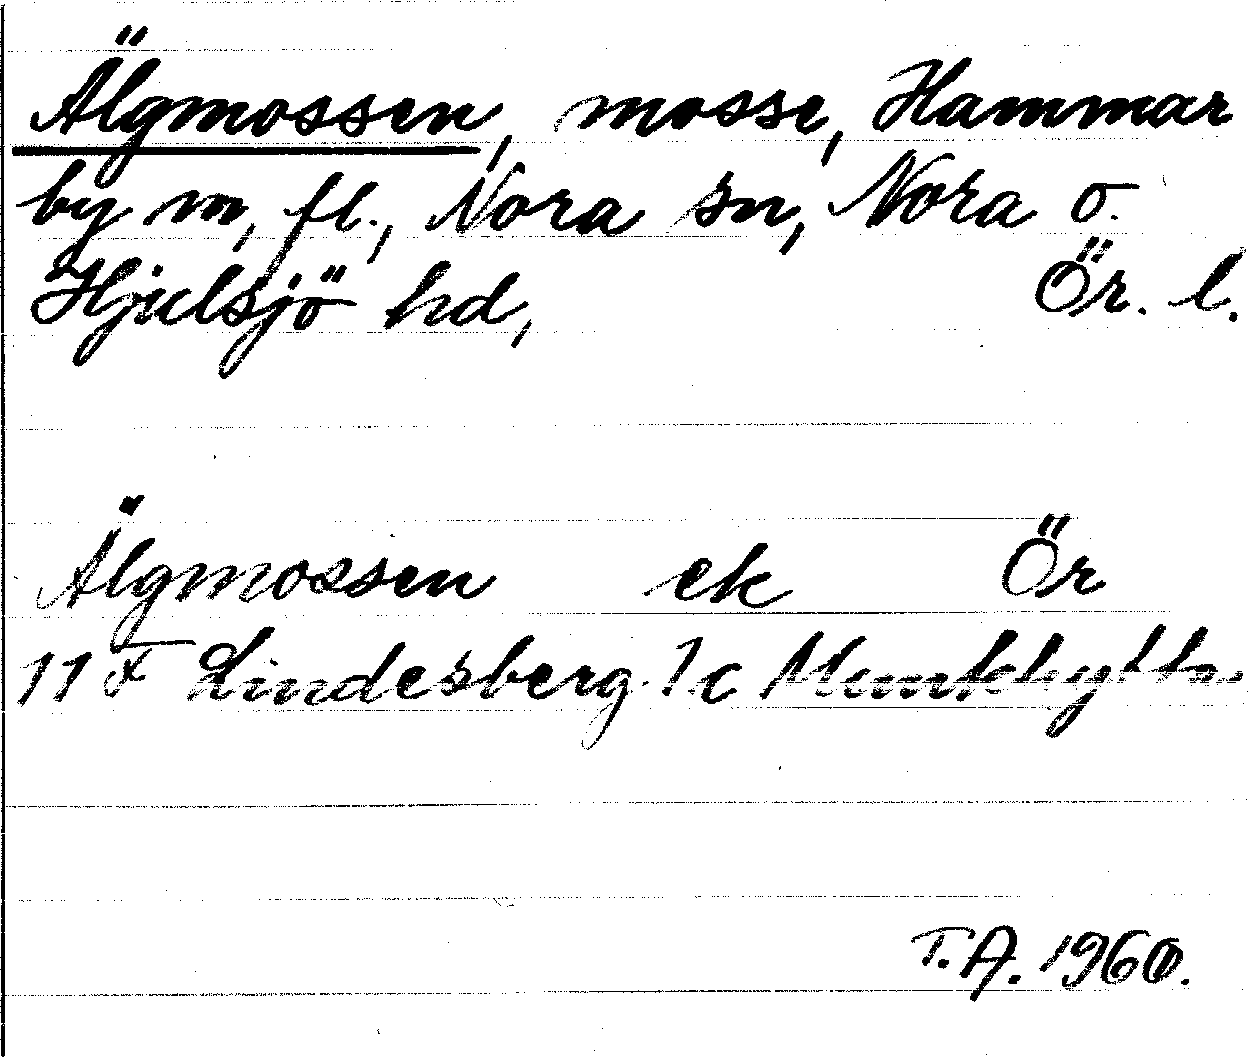 Älgmossen, mosse, Hammar
by m, fl., Nora sn, Nora o.
Hjulsjö hd, Ör. l.
Älgmossen ek Ör
11 F Lindesberg 1c Munkhyttan
T.A. 1960.